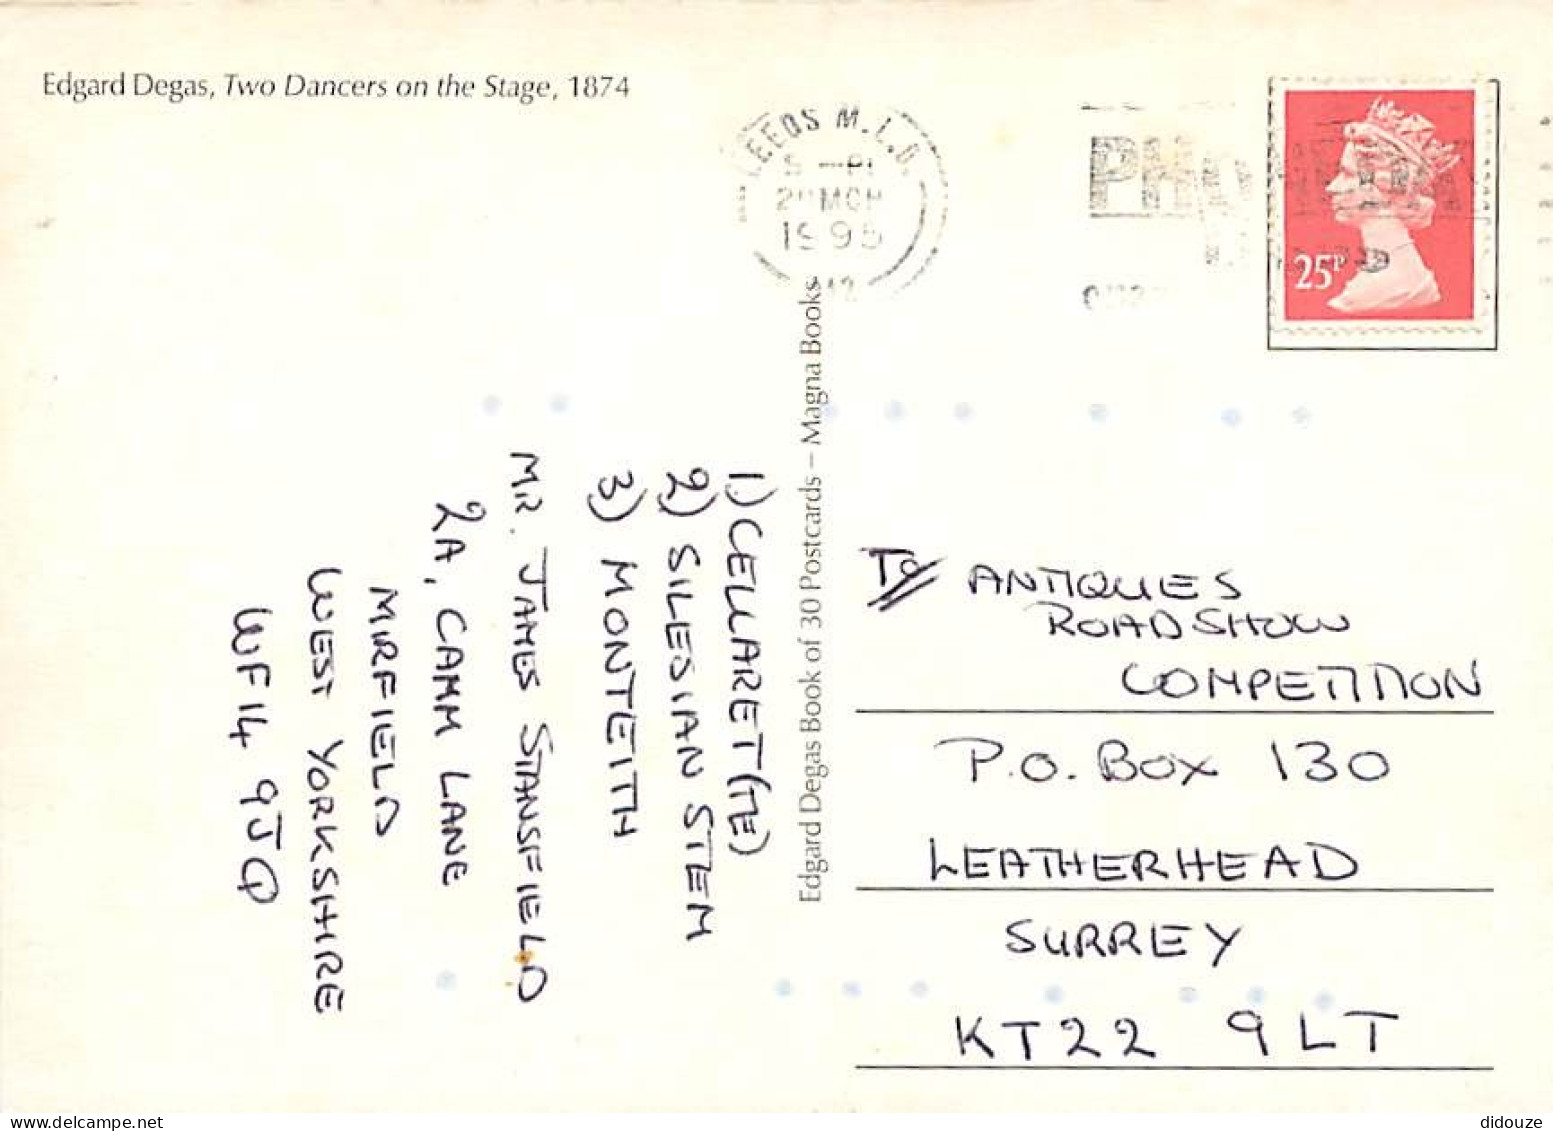 Edgard Degas, Two Dancers on the Stage, 1874
LEEDS M.L.O.
1995
25P
Edgard Degas Book of 30 Postcards – Magna Books
1) CELLARET(TE)
2) SILESIAN STEM
3) MONTEITH
MR. JAMES STANSFIELD
2A, CAMM LANE
MIRFIELD
WEST YORKSHIRE
WF14 9JQ
To ANTIQUES
ROADSHOW
COMPETITION
P.O. BOX 130
LEATHERHEAD
SURREY
KT22 9LT
didouze